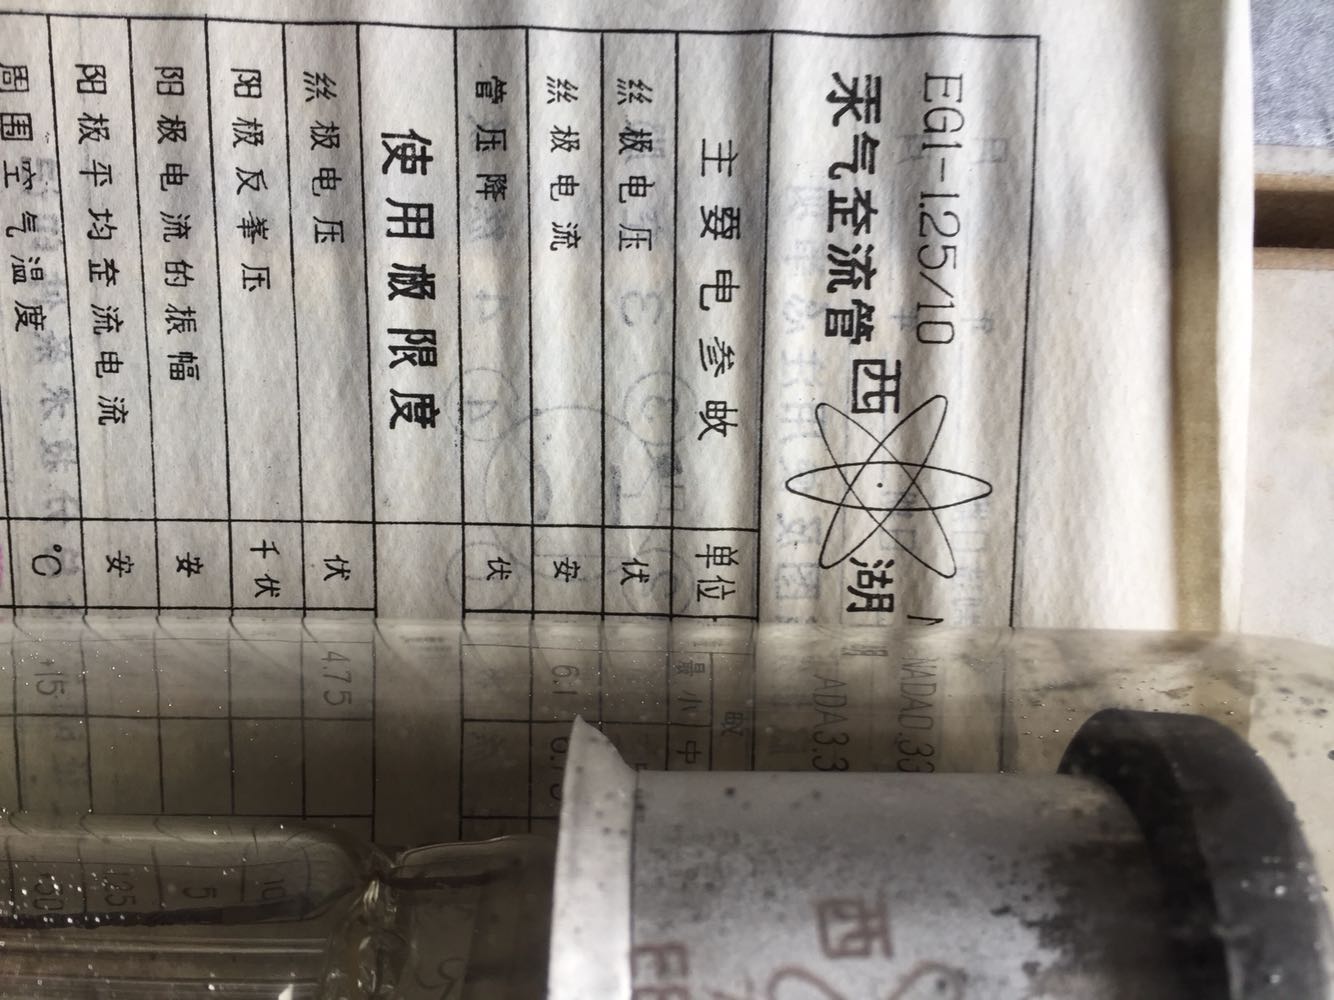 EG1-1.25/10
汞气整流管
西湖
主要电参数 单位
最小 中
丝极电压 伏
丝极电流 安 6.1
管压降 伏
使用极限度
丝极电压 伏 4.75
阳极反峯压 千伏 10
阳极电流的振幅 安 5
阳极平均整流电流 安
周围空气温度 °C 15
西